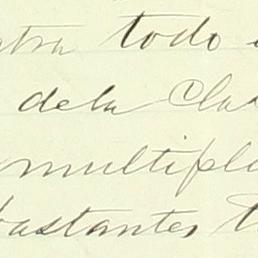 todo
dela Cla
multiple
bastantes